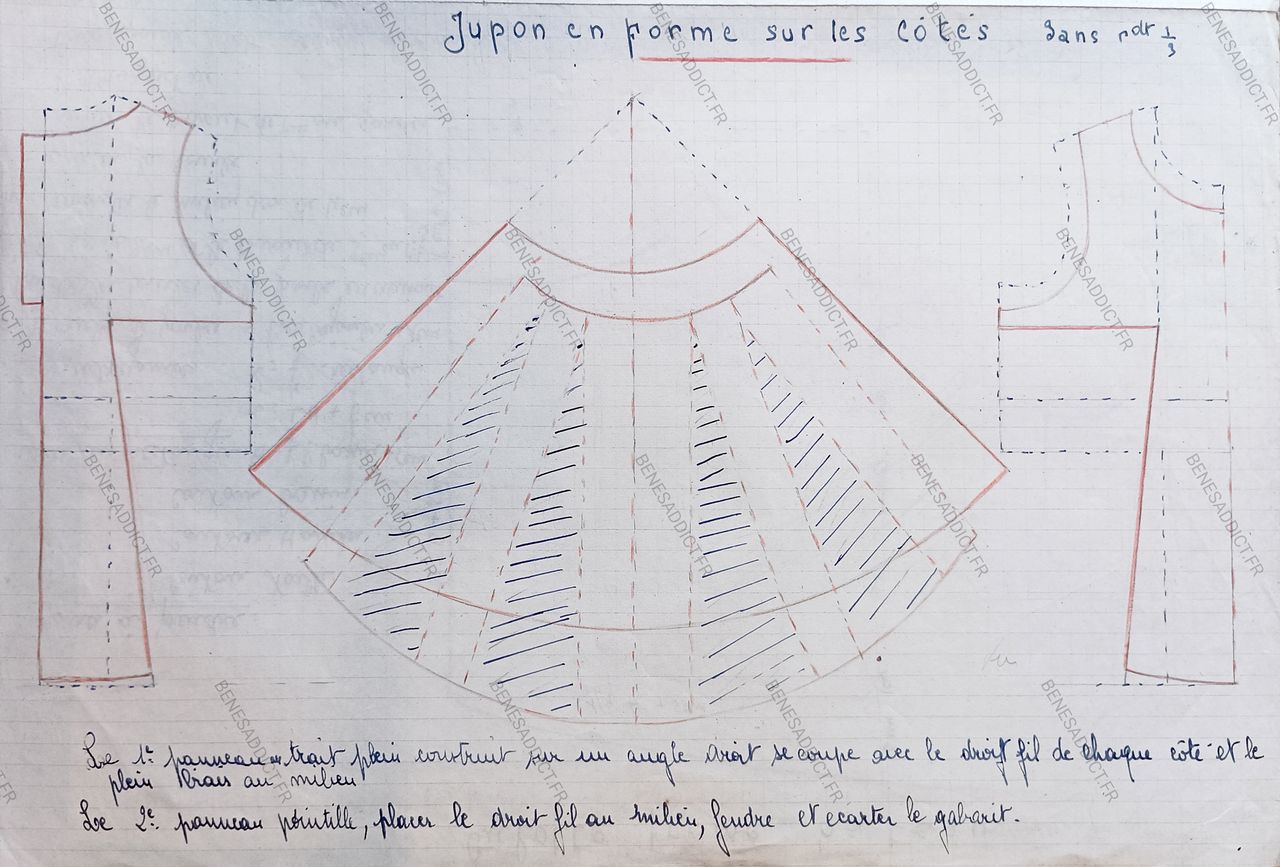 Jupon en forme sur les côtés
Sans rdr 1/3
Le 1er panneau en trait plein construit sur un angle droit se coupe avec le droit fil de chaque côté et le
plein biais au milieu
Le 2e panneau pointillé, placer le droit fil au milieu, fendre et ecarter le gabarit.
BENESADDICT.FR